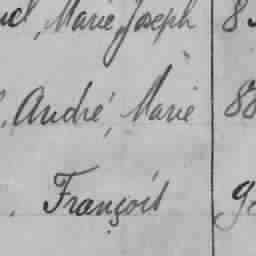 Marie, Joseph 8
André, Marie 88
François 9